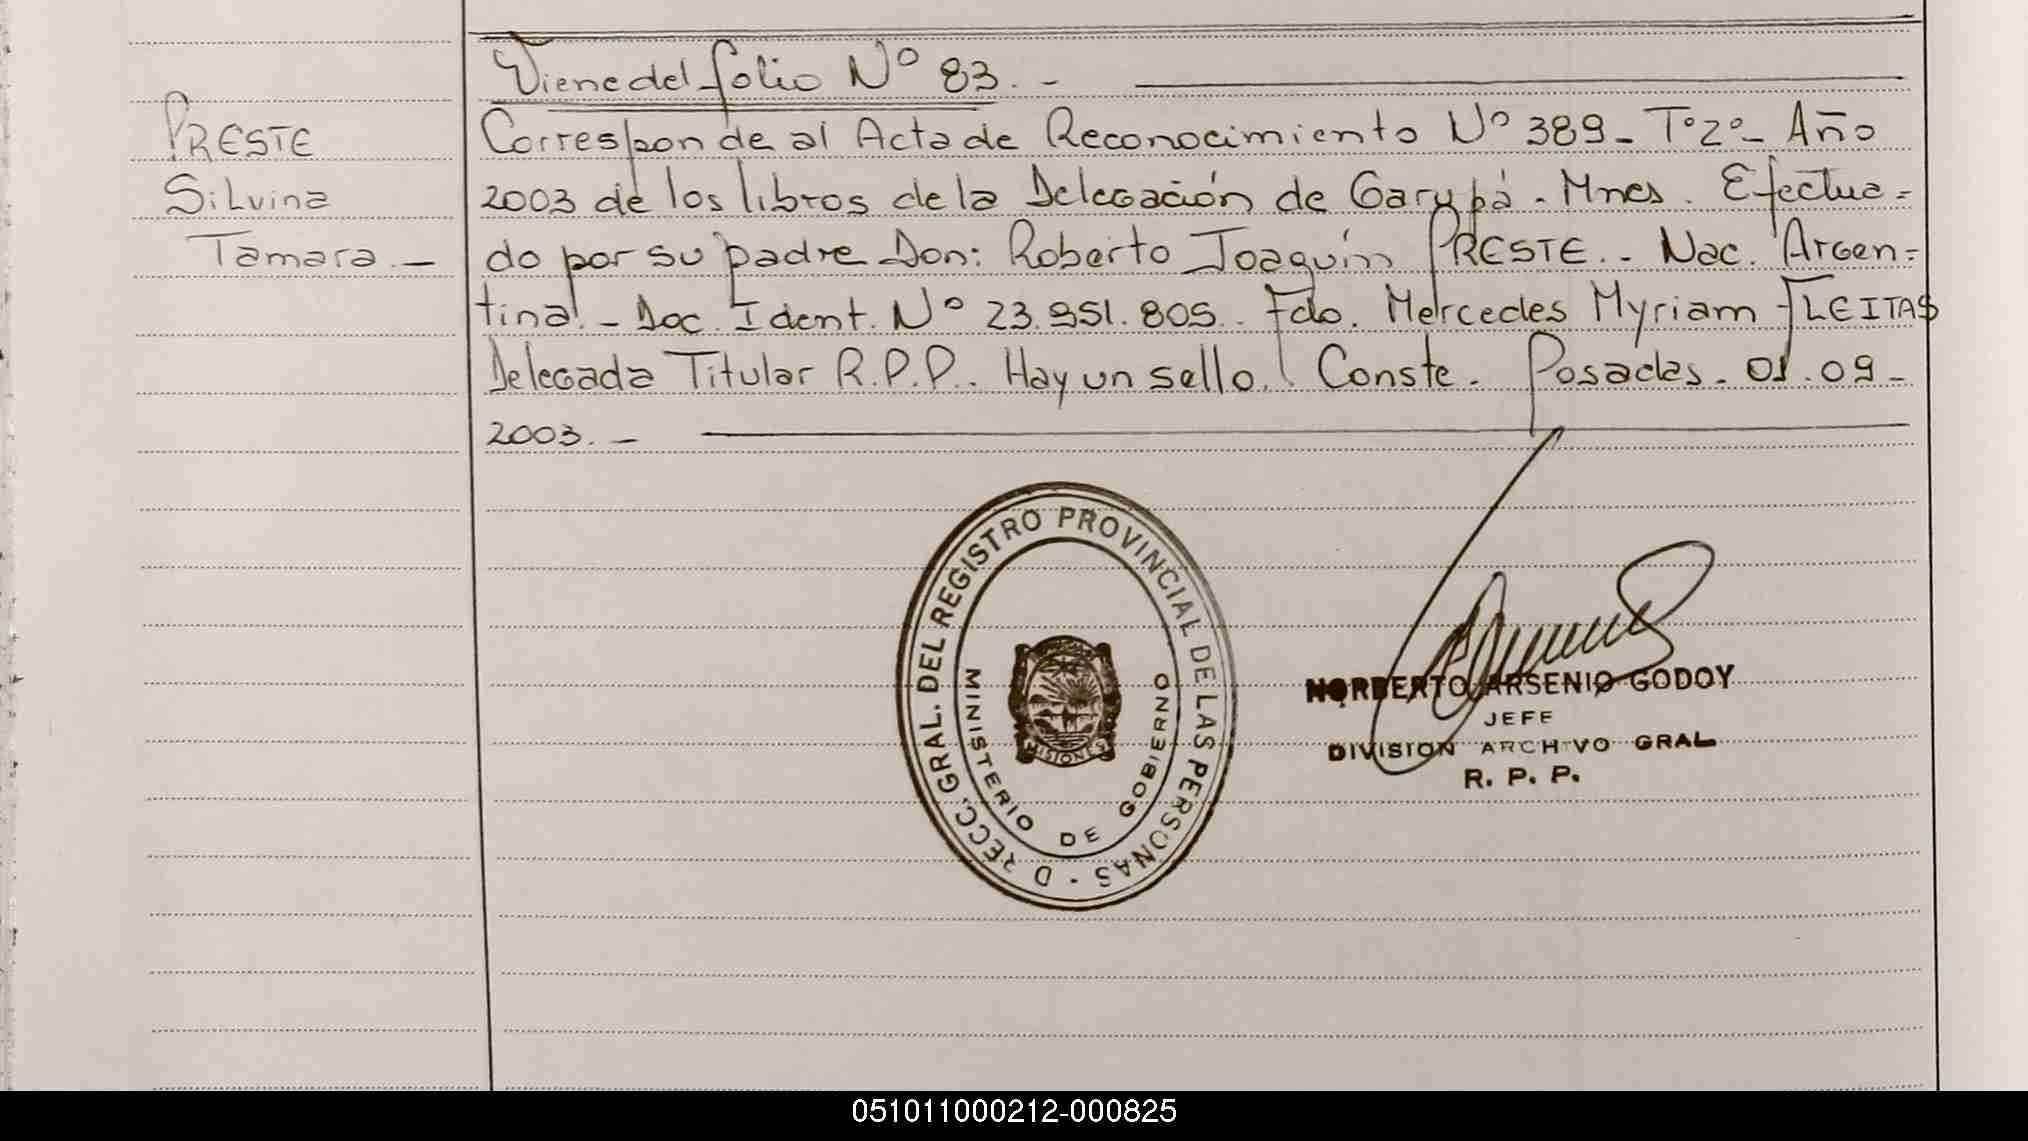 Viene del folio Nº 83. -
PRESTE
Silvina
Tamara. -
Corresponde al Acta de Reconocimiento Nº 389 - Tº 2º - Año
2003 de los libros de la Delegación de Garupá - Mnes. Efectua =
do por su padre Don: Roberto Joaquín PRESTE. - Nac. Argen =
tina. - Doc. Ident. Nº 23.951.805. Fdo. Mercedes Myriam FLEITAS
Delegada Titular R.P.P. Hay un sello. Conste. Posadas. 01.09 -
2003. -
D RECC. GRAL. DEL REGISTRO PROVINCIAL DE LAS PERSONAS -
MINISTERIO DE GOBIERNO
MISIONES
NORBERTO ARSENIO GODOY
JEFE
DIVISION ARCHIVO GRAL
R. P. P.
051011000212-000825